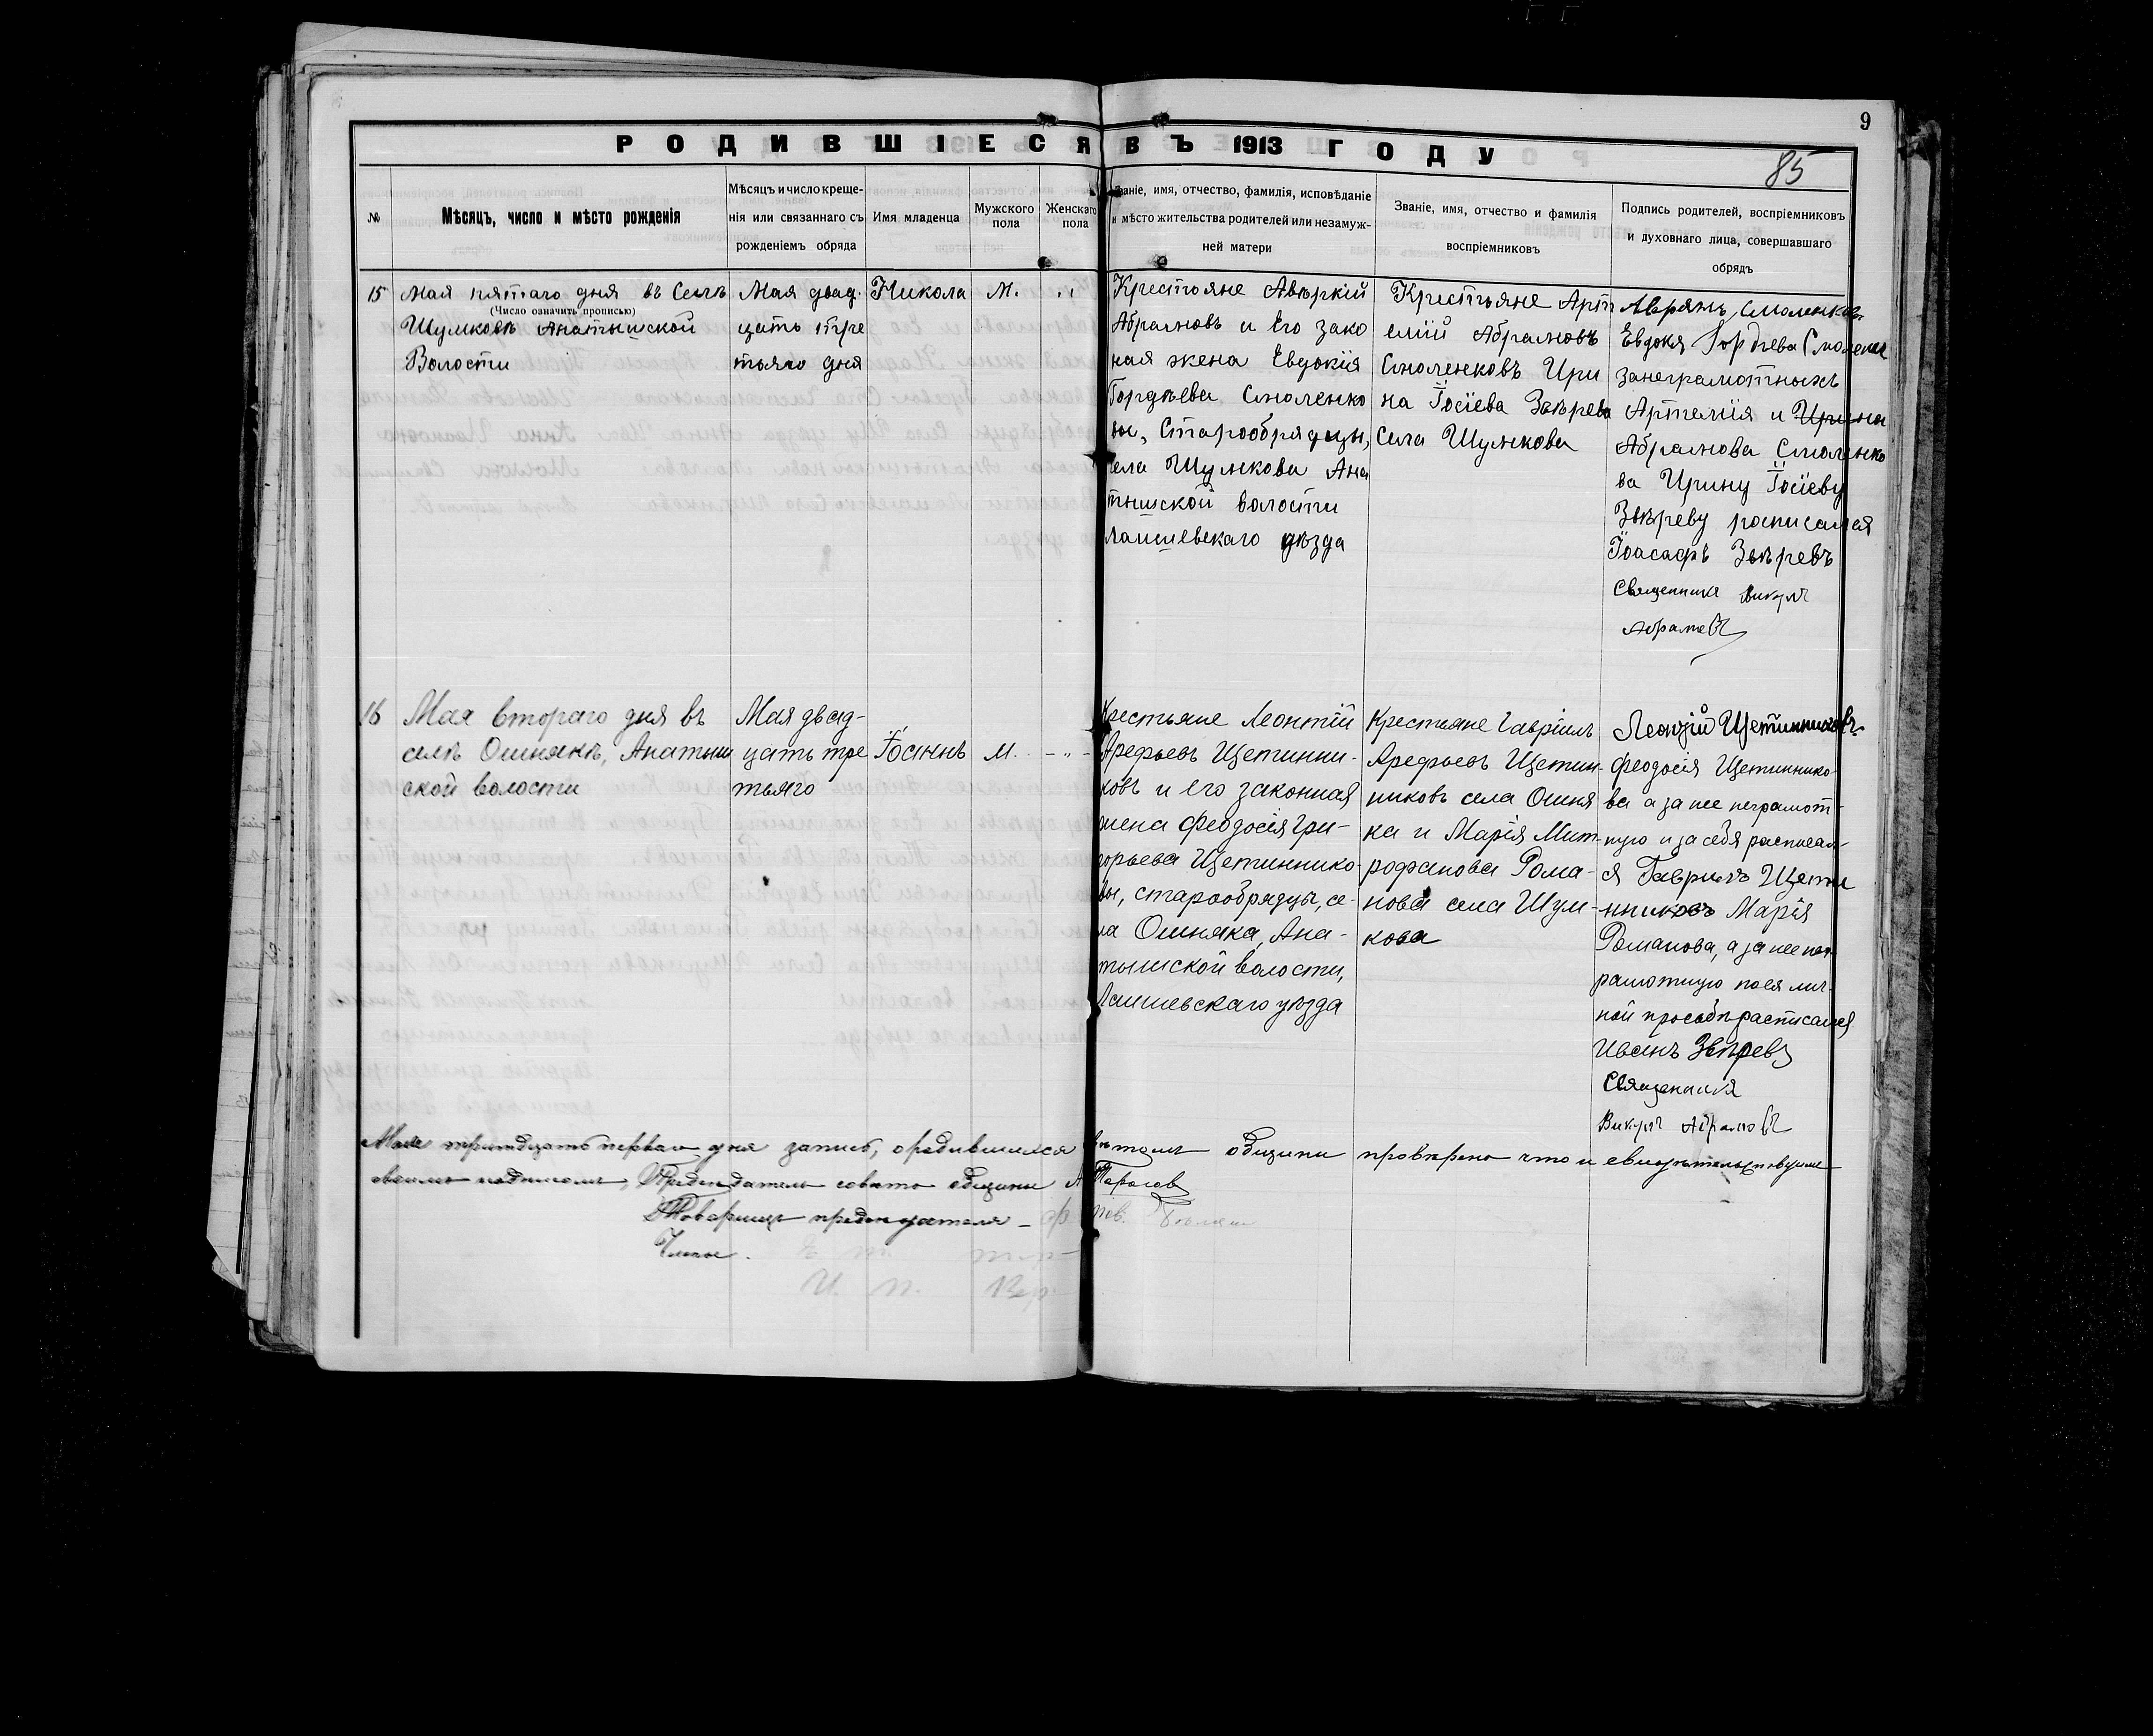 9
РОДИВШІЕСЯ ВЪ 1913 ГОДУ
85
№
Мѣсяцъ, число и мѣсто рожденія
Мѣсяцъ и число креще-
нія или связаннаго съ
рожденіемъ обряда
Имя младенца
Мужского
пола
Женскаго
пола
Званіе, имя, отчество, фамилія, исповѣданіе
и мѣсто жительства родителей или незамуж-
ней матери
Званіе, имя, отчество и фамилія
воспріемниковъ
Подпись родителей, воспріемниковъ
и духовнаго лица, совершавшаго
обрядъ
15
Мая пятаго дня въ Селѣ
(Число означить прописью)
Шумковѣ Анатышской
Волости
Мая двад.
цать тре
тьяго дня
Никола
М.
Крестьяне Авѣркій
Абрамовъ и Его зако
ная жена Евдокія
Гордѣева Смоленко
вы, Старообрядцы,
села Шумкова Ана
тышской волости
Лаишевскаго уѣзда
Крестьяне Арт
емій Абрамовъ
Смоленковъ Ири
на Іосіева Звѣрева
Села Шумкова
Смоленковъ
Евдокя Гордѣева Смоленк
занеграмотныхъ
Артемія и Ирина
Абрамова Смоленко
ва Ирину Іосіеву
Звѣреву росписался
Іоасафъ Звѣревъ
Священникъ Викулъ
Абрамовъ
16
Мая втораго дня въ
селѣ Ошнякѣ, Анатыш
ской волости
Мая двад-
цать тре
тьяго
Іоаннъ
М.
- " -
Крестьяне Леонтій
Арефьевъ Щетинни-
ковъ и его законная
жена Феодосія Гри-
горьева Щетиннико-
вы, старообрядцы, се-
ла Ошняка, Ана-
тышской волости,
Лаишевскаго уѣзда
Крестьяне Гавріилъ
Арефьевъ Щетин-
никовъ села Ошня
ка и Марія Мит-
рофанова Рома-
нова села Шум-
кова
Леонтій Щетинниковъ.
Феодосія Щетиннико-
ва а за нее неграмот-
ную и за себя расписал-
ся Гаврилъ Щети
нниковъ Марія
Романова, а за нее негр
рамотную по ея лич-
ной просьбѣ расписался
Иванъ Звѣревъ
Священникъ
Викулъ Абрамовъ
Мая тридцать перваго дня запись, о родившихся въ томъ общины провѣрена что и
своимъ подписомъ, Предсѣдатель совѣта общины А Тарасов
Товарищъ предсѣдателя -
Члены.